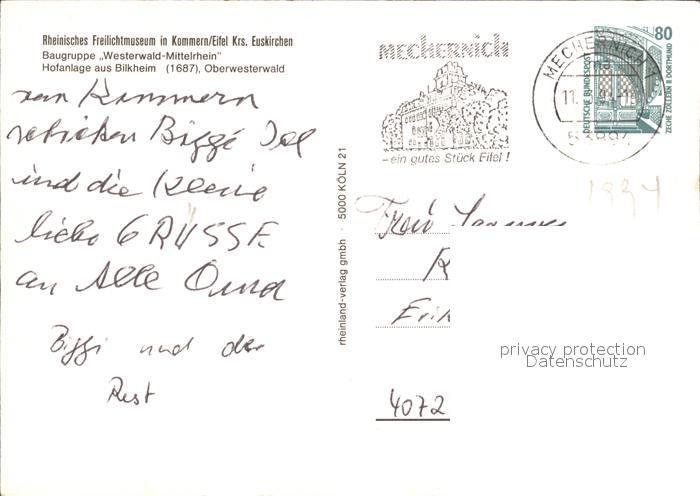 Rheinisches Freilichtmuseum in Kommern/Eifel Krs. Euskirchen
Baugruppe „Westerwald-Mittelrhein"
Hofanlage aus Bilkheim (1687), Oberwesterwald
von Kommern
schicken Biggi
und die Kleine
liebe GRÜSSE
an Alle
Biggi und der
Rest
rheinland-verlag gmbh · 5000 KÖLN 21
MECHERNICH
–ein gutes Stück Eifel!
MECHERNICH 1
11.
53894
80
DEUTSCHE BUNDESPOST
ZECHE ZOLLERN II DORTMUND
1994
Frau
4072
privacy protection
Datenschutz